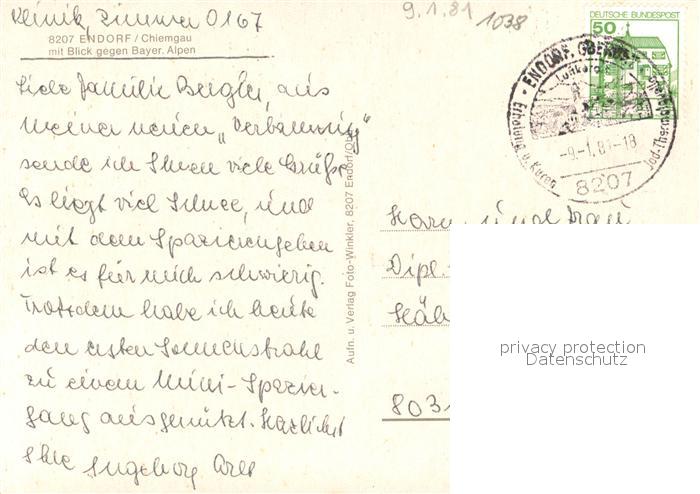 Klinik, Zimmer 0167
9.1.81
1038
8207 ENDORF / Chiemgau
mit Blick gegen Bayer. Alpen
Liebe Familie Bergler, aus
meiner neuen „Verbannung"
sende ich Ihnen viele Grüße.
Es liegt viel Schnee, und
mit dem Spazierengehen
ist es für mich schwierig.
Trotzdem habe ich heute
den ersten Sonnenstrahl
zu einem Mini-Spazier-
gang ausgenützt. Herzlichst
Ihre Ingeborg
Aufn. u. Verlag Foto-Winkler, 8207 Endorf/Obb.
DEUTSCHE BUNDESPOST
50
ENDORF, OBERBAY
Luftkurort
Erholung u. Kuren
Jod-Thermal
-9.-1.81-18
8207
Herrn und Frau
Dipl.
803
privacy protection
Datenschutz